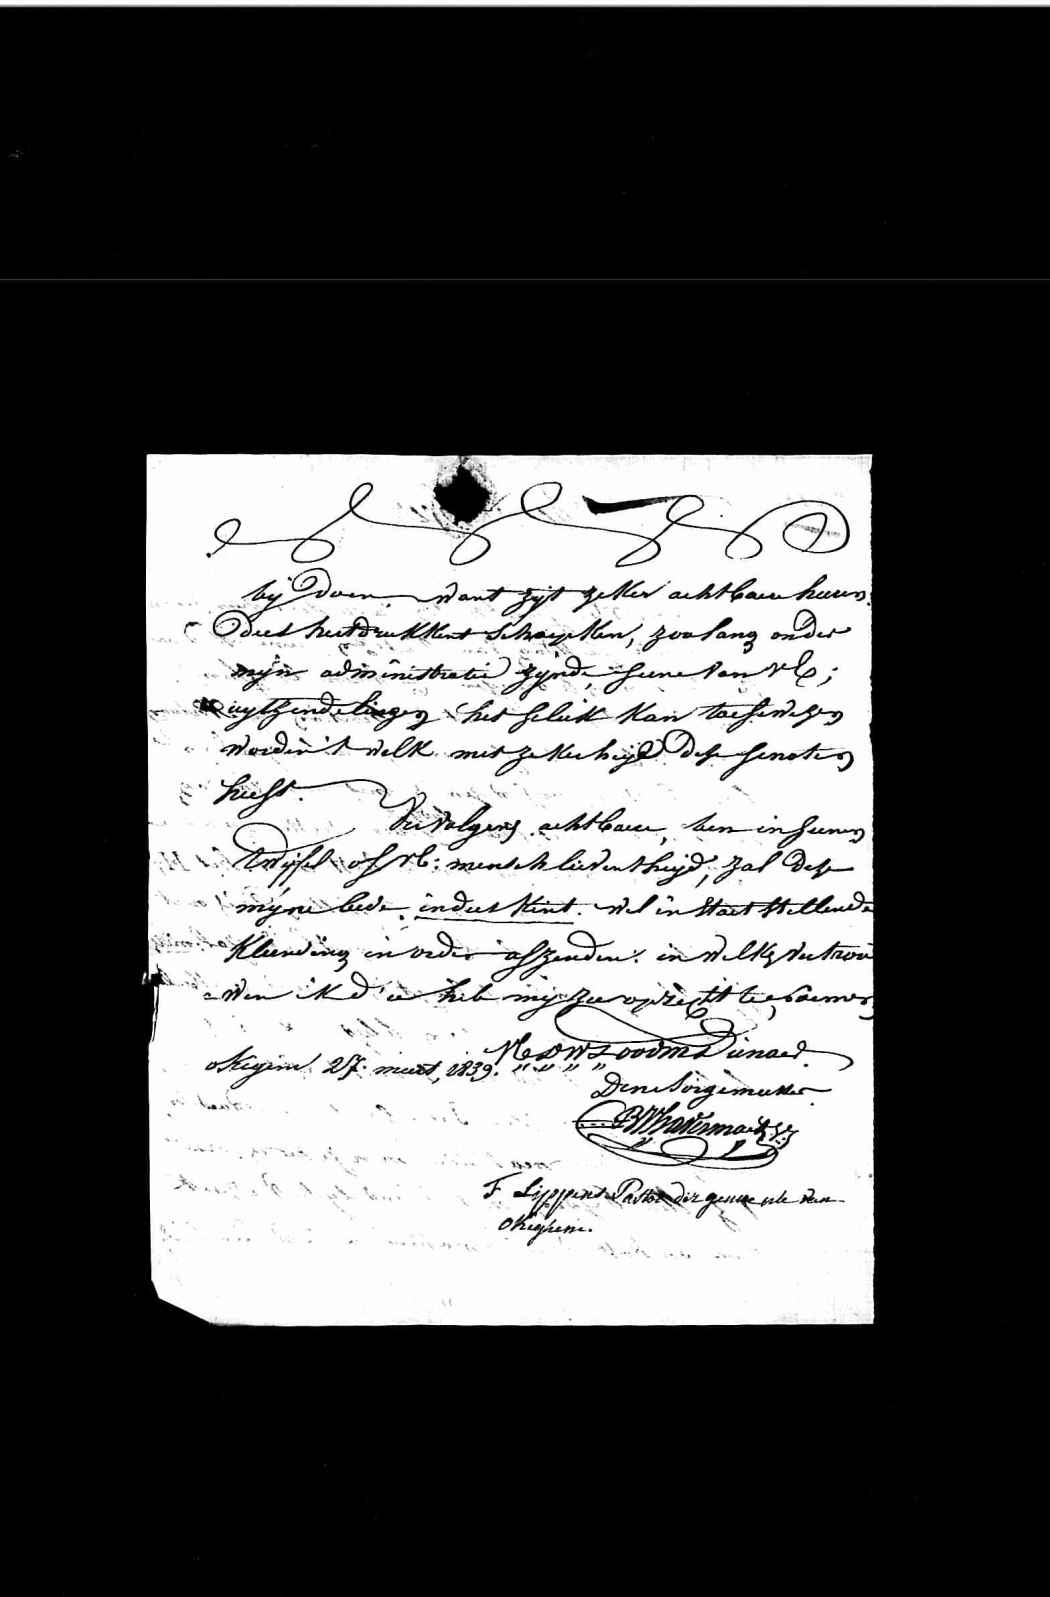 bij doen. want zijt zeker achtbaere heeren
dees hertdrukkent schroyken, zoo lang onder
mijn administratie zijnde, geene van vE;
uytzendelingen het geluk kan toegewezen
worden 't welk met zekerheyd dese genoten
heeft.
Vervolgens achtbaere, ben in geenen
twyffel of vE: menschlieventheyd, zal dese
myne bede in dees kint. wel in staet stellende
Kleeding in order afzenden. in welk vertrou
wen ik d'ee heb mij zeer opregt te noemen
okegem 27 meert, 1839.
dienaer
Den
F Lippens Pastor der gemeente van
okeghem.